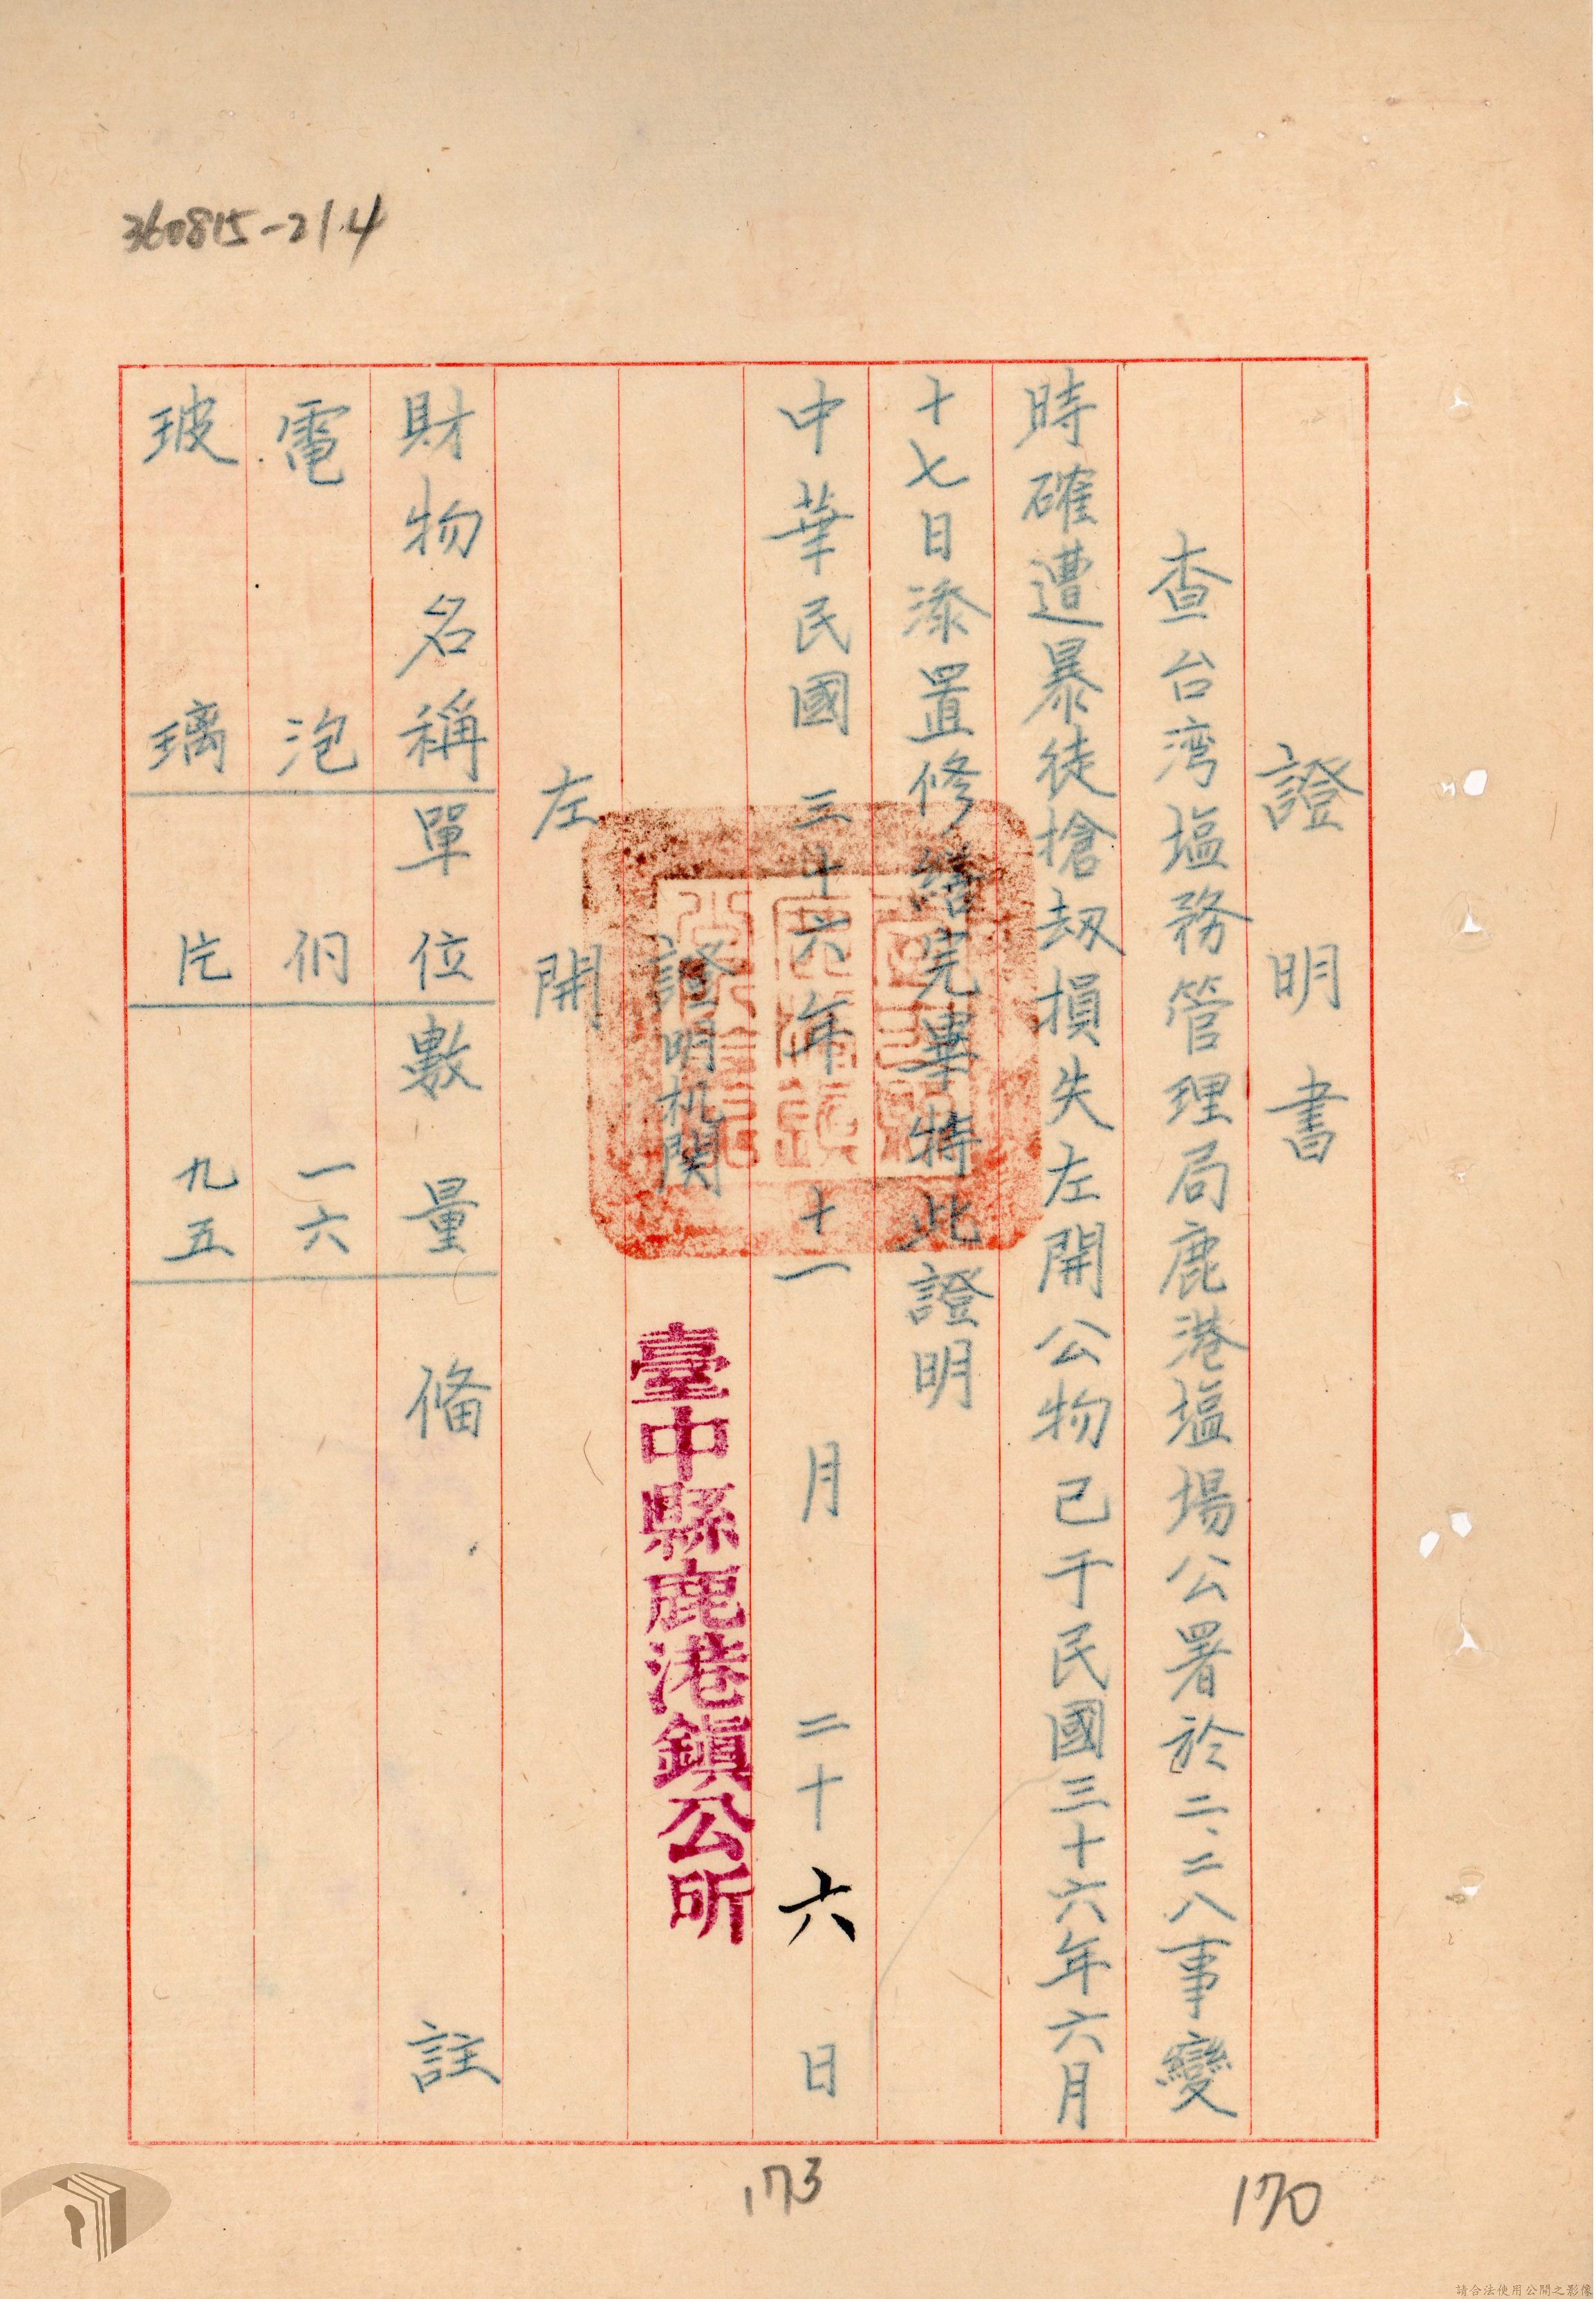 360815-21.4
證明書
查台湾塩務管理局鹿港塩場公署於二、二八事變
時確遭暴徒搶刼損失左開公物已于民國三十六年六月
十七日添置修繕完畢特此證明
中華民國三十六年十一月二十六日
證明机関
臺中縣鹿港鎮公所
左開
財物名稱 單位 數量 俻註
電泡 個 一六
玻璃 片 九五
173
170
請合法使用公開之影像